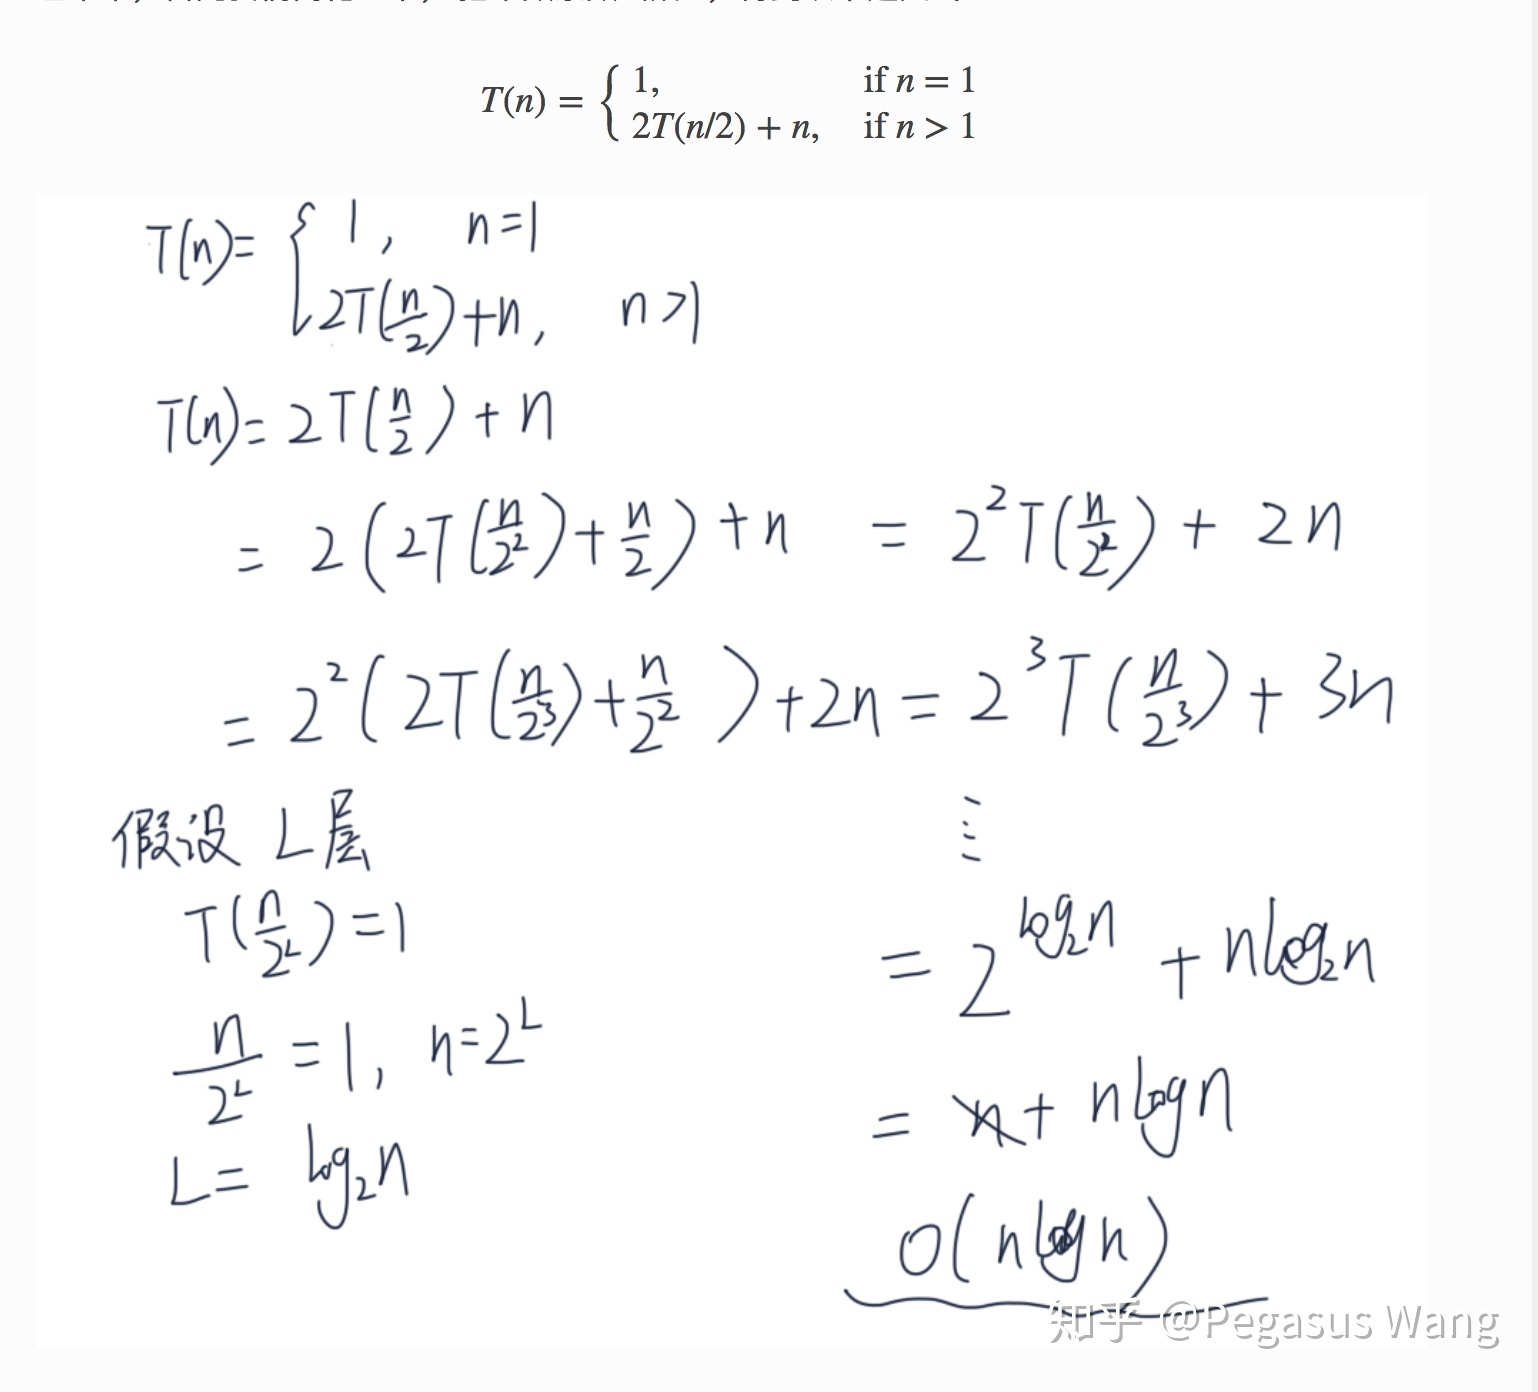 T(n) = { 1, if n = 1
2T(n/2) + n, if n > 1
T(n)= { 1, n=1
2T(n/2)+n, n>1
T(n)= 2T(n/2) + n
= 2(2T(n/2²)+n/2)+n = 2²T(n/2²) + 2n
= 2²(2T(n/2³)+n/2²)+2n = 2³T(n/2³) + 3n
假设 L层
⋮
T(n/2^L)=1
= 2^(log₂n) + nlog₂n
n/2^L =1, n=2^L
= n+ nlogn
L= log₂n
O(nlogn)
知乎 @Pegasus Wang